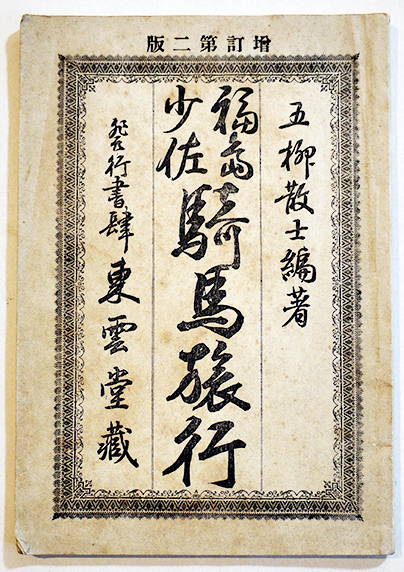 版二第訂增
五柳散士編著
福島少佐
騎馬旅行
發行書肆東雲堂藏